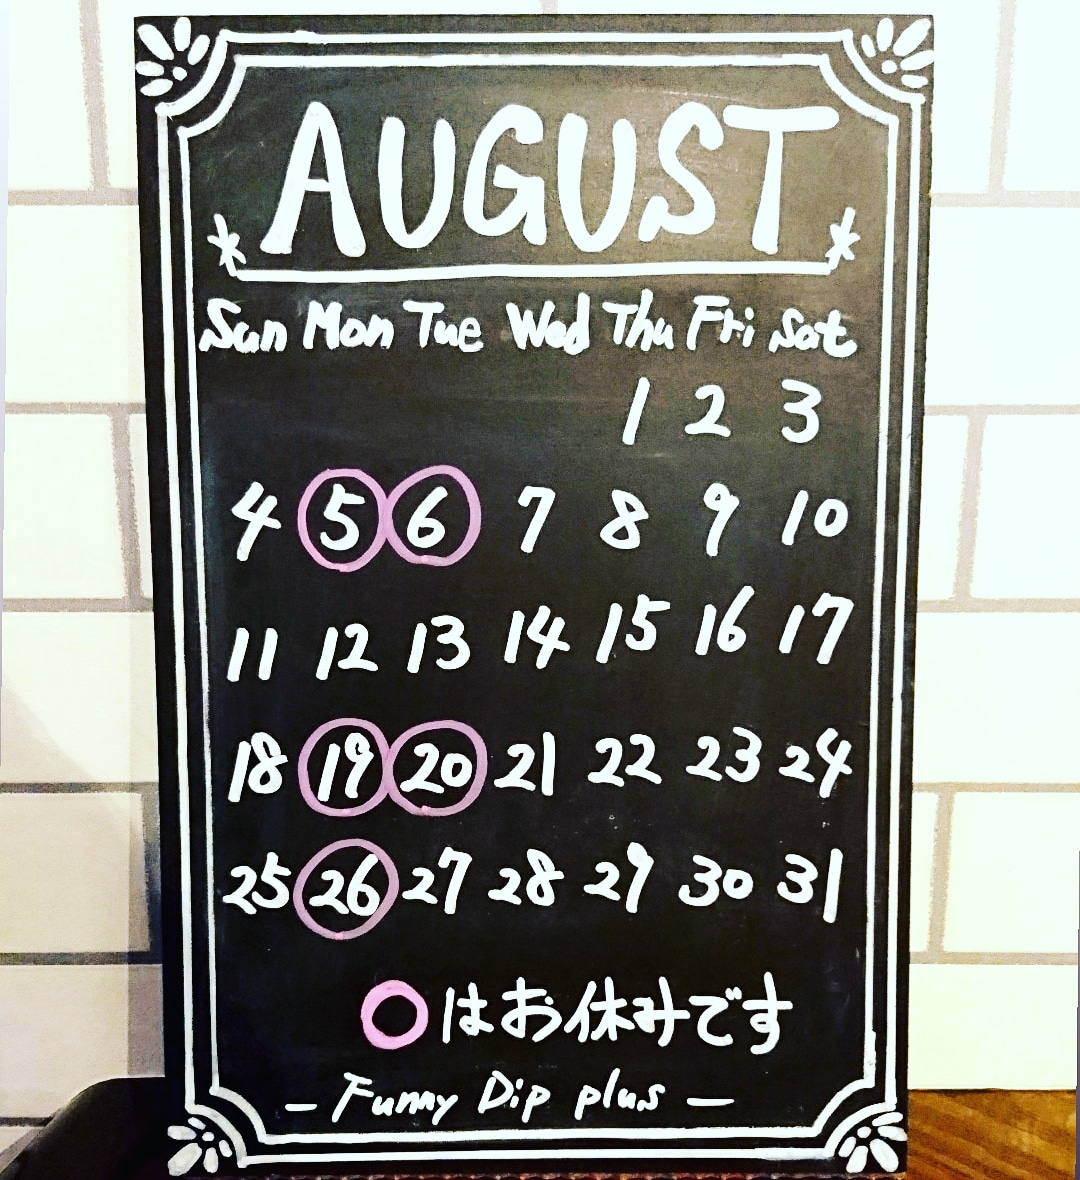 AUGUST
Sun Mon Tue Wed Thu Fri Sat
1 2 3
4 5 6 7 8 9 10
11 12 13 14 15 16 17
18 19 20 21 22 23 24
25 26 27 28 29 30 31
○はお休みです
- Funny Dip plus -